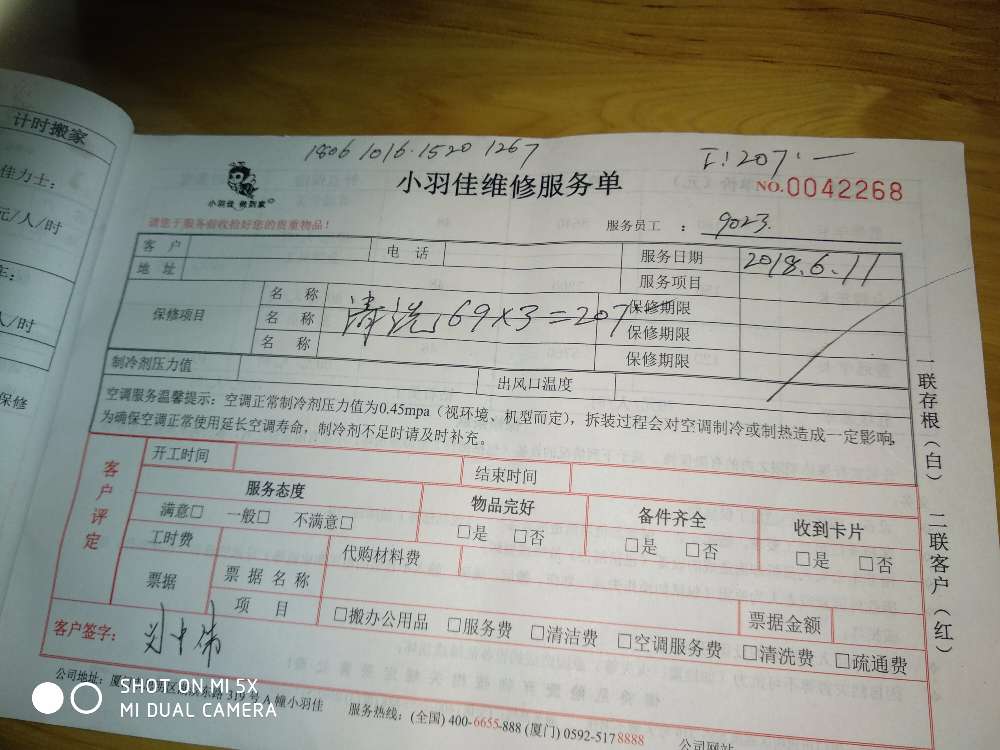 计时搬家
佳力士：
元/人/时
车：
人/时
保修
1806 1016·1520 1267
I:207·一
小羽佳 做到家
小羽佳维修服务单
NO.0042268
请您于服务前收拾好您的贵重物品！
服务员工 ： 9023
客 户
电 话
服务日期 2018.6.11
地 址
服务项目
保修项目
名 称 保修期限
名 称 清洗69×3=207 保修期限
名 称 保修期限
制冷剂压力值
出风口温度
空调服务温馨提示：空调正常制冷剂压力值为0.45mpa（视环境、机型而定），拆装过程会对空调制冷或制热造成一定影响，
为确保空调正常使用延长空调寿命，制冷剂不足时请及时补充。
一联存根（白） 二联客户（红）
客户评定
开工时间
结束时间
服务态度 物品完好 备件齐全 收到卡片
满意□ 一般□ 不满意□ □是 □否 □是 □否 □是 □否
工时费 代购材料费
票据 票据名称 票据金额
项 目 □搬办公用品 □服务费 □清洁费 □空调服务费 □清洗费 □疏通费
客户签字：
公司地址：厦 319号A幢小羽佳 服务热线：(全国) 400-6655-888 (厦门) 0592-517 8888
公司网站
SHOT ON MI 5X
MI DUAL CAMERA